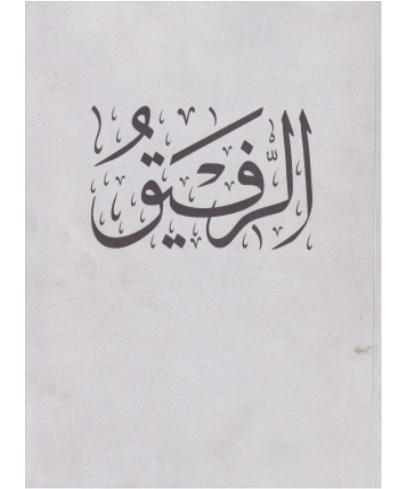 الرَّفيقُ